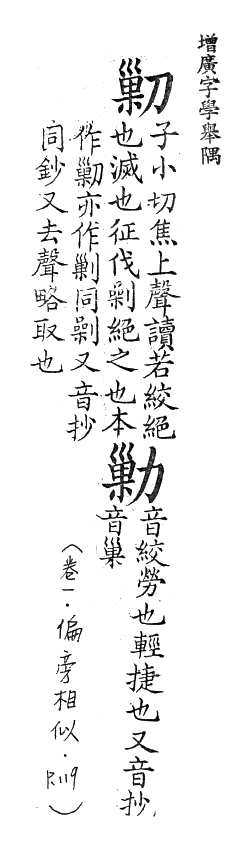 增廣字學舉隅
𠞰
子小切焦上聲讀若絞絕
也滅也征伐剿絕之也本
作𠞰亦作剿同剿又音抄
同鈔又去聲略取也
勦
音絞勞也輕捷也又音抄
音巢
(卷一.偏旁相似.P.119)